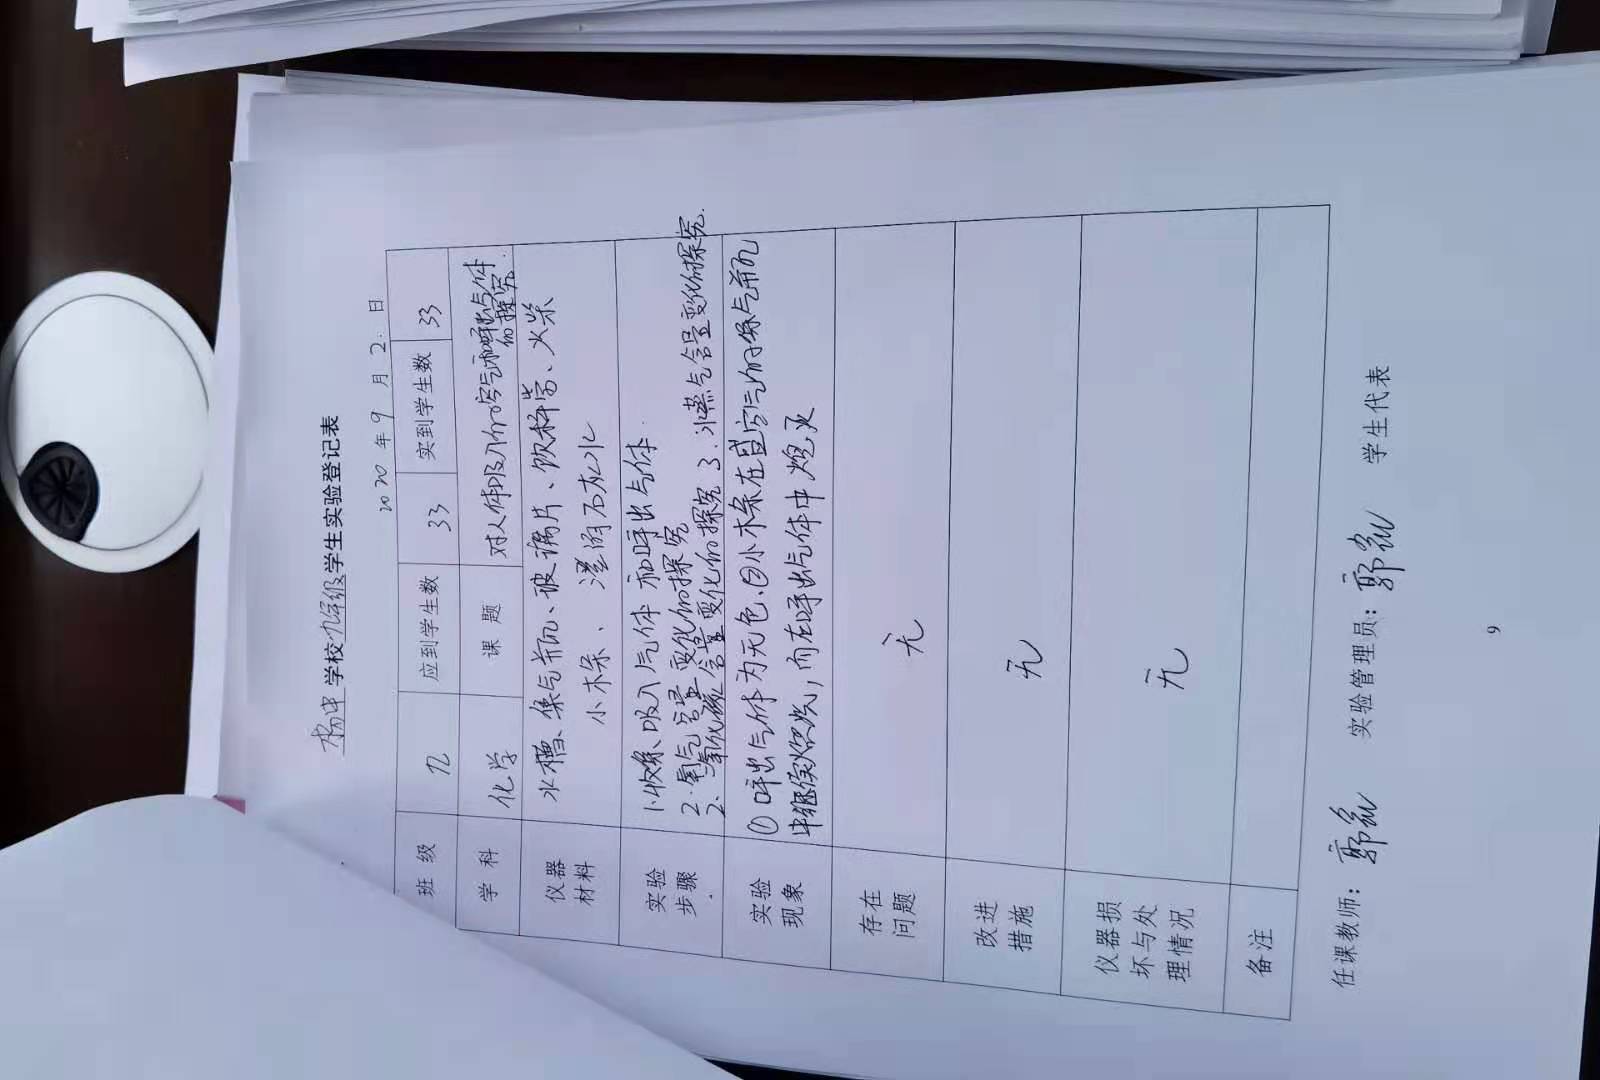 杨中学校九年级学生实验登记表
2020年9月2.日
班级 九 应到学生数 33 实到学生数 33
学科 化学 课题 对人体吸入的空气和呼出气体
的探究.
仪器
材料
水槽、集气瓶、玻璃片、饮料管、火柴
小木条、澄清石灰水
实验
步骤
1.收集吸入气体和呼出气体.
2.氧气含量变化的探究
2.二氧化碳含量变化的探究 3.水蒸气含量变化的探究.
实验
现象
①呼出气体为无色、②小木条在盛空气的集气瓶
中继续燃烧,而在呼出气体中熄灭
存在
问题
无
改进
措施
无
仪器损
坏与处
理情况
无
备注
任课教师: 郭 实验管理员: 郭 学生代表
9